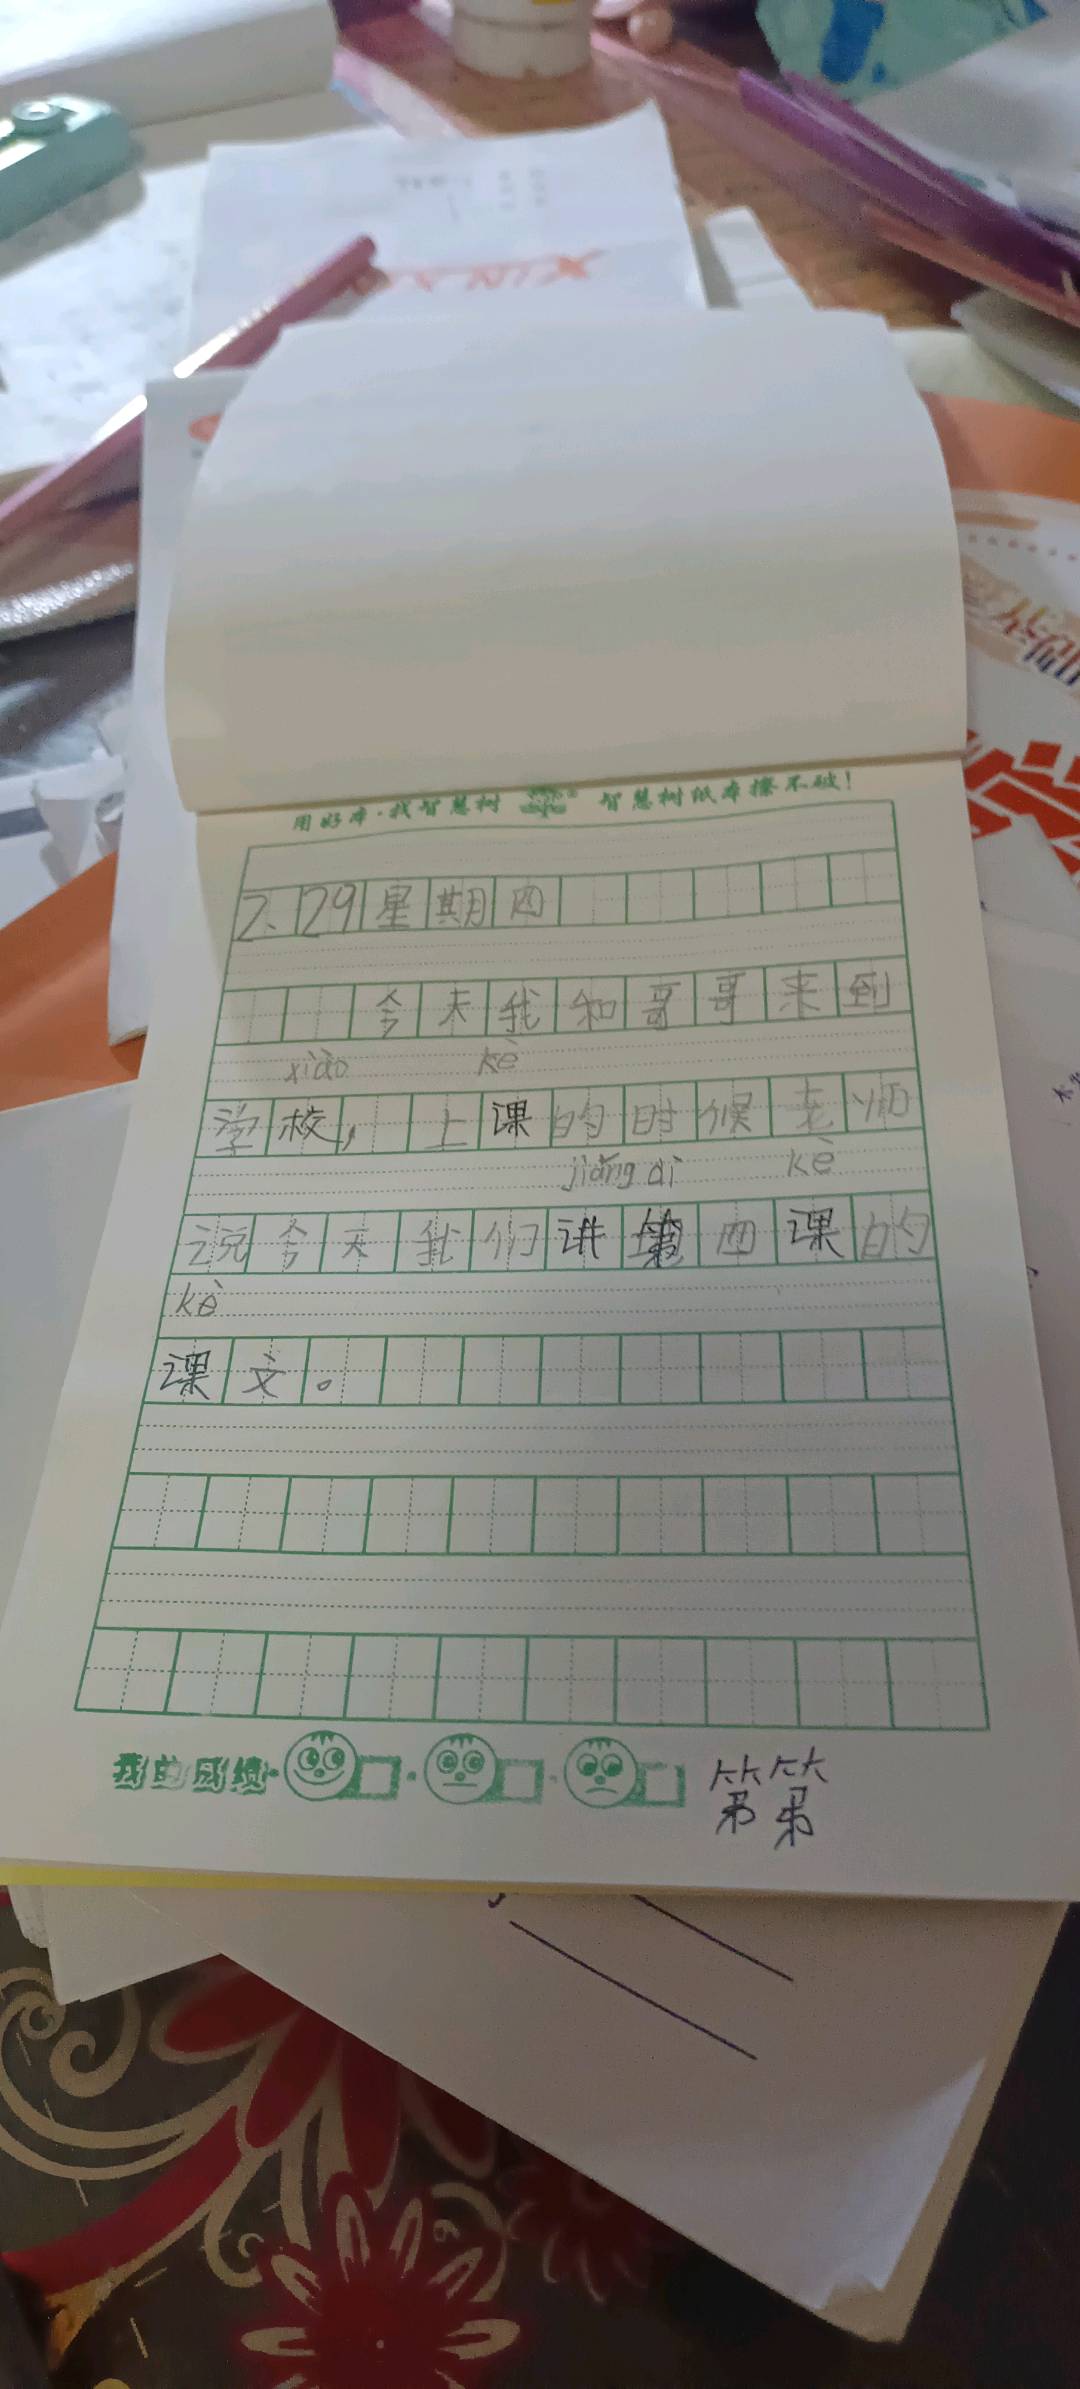 XINXI
用好本·找智慧树 智慧树纸本擦不破！
2.29星期四
今天我和哥哥来到
xiào kè
学校，上课的时候老师
jiǎng dì kè
说今天我们讲第四课的
kè
课文。
我的成绩
第第